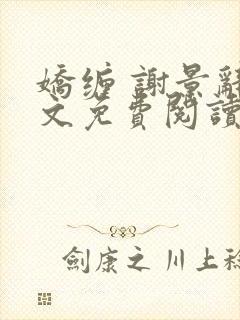 嬌缠 謝景辭
文免費閱讀
劍康之 川上稔